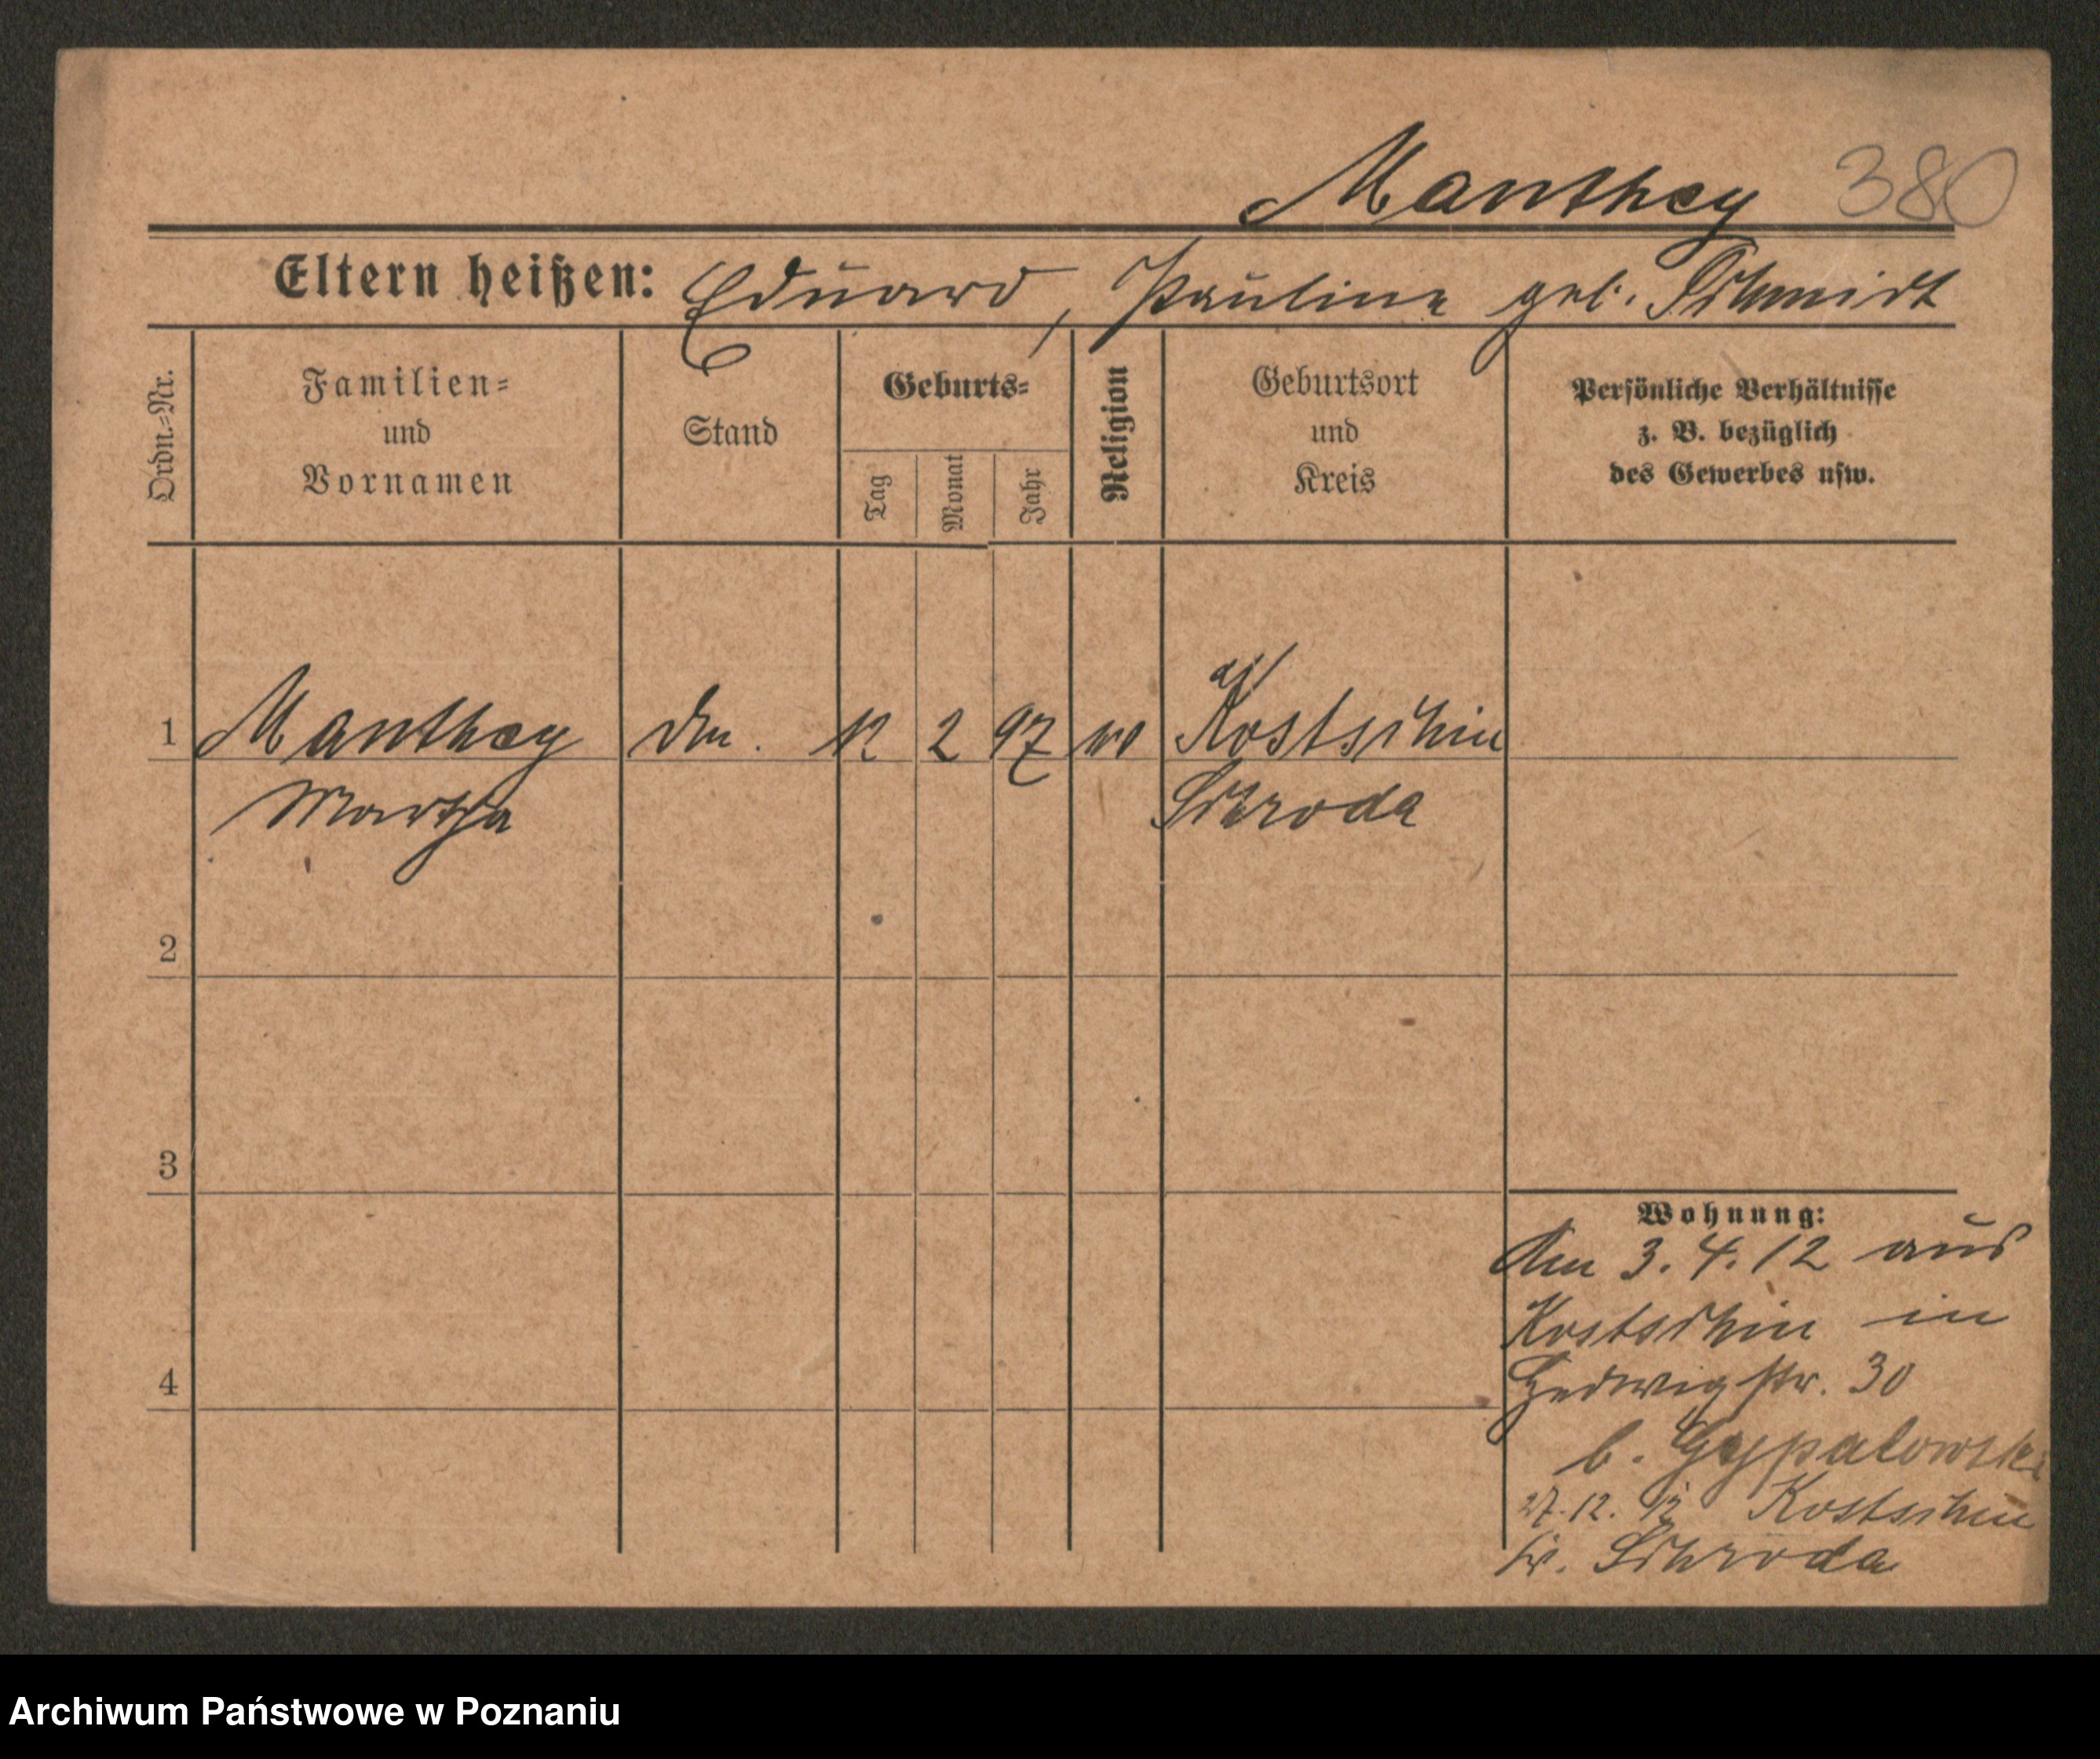 Manthey 380
Eltern heißen: Eduard, Pauline geb. Schmidt
Ordn.=Nr.
Familien=
und
Vornamen
Stand
Geburts=
Tag
Monat
Jahr
Religion
Geburtsort
und
Kreis
Persönliche Verhältnisse
z. B. bezüglich
des Gewerbes usw.
1 Manthey 12 2 97 Kostschin
Martha Schroda
2
3
4
Wohnung:
Am 3.4.12 aus
Kostschin in
Hedwigstr. 30
b.
27.12.12 Kostschin
Schroda
Archiwum Państwowe w Poznaniu